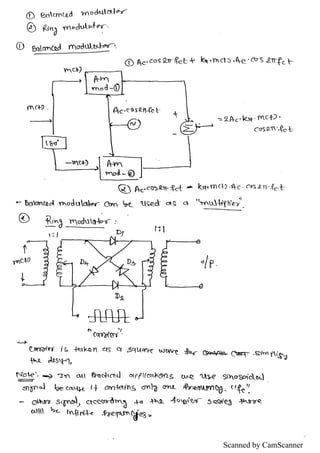 ① Balanced modulator
② Ring modulator.
① Balanced modulator:
① Ac.cos2π fct + ka.m(t).Ac.cos 2πfct
m(t)
Am
mod-①
m(t)
Ac.cos2πfct
+
~
Σ
= 2Ac.ka.m(t).
cos2π.fct
-
180°
-m(t)
Am
mod-②
② Ac.cos2π.fct - ka.m(t).Ac.cos2π.fct
- Balanced modulator can be used as a "multiplier".
② Ring modulator:
1:1
D1
1:1
m(t)
D4
D3
o/p.
D2
"carrier".
→
Carrier is taken as a square wave for simplify
the design,
Note: → In all Practical applications we use sinosoidal
signal because it contains only one frequency. "fc"
- other signal, according to the fourier series there
will be infinite frequencies.
Scanned by CamScanner